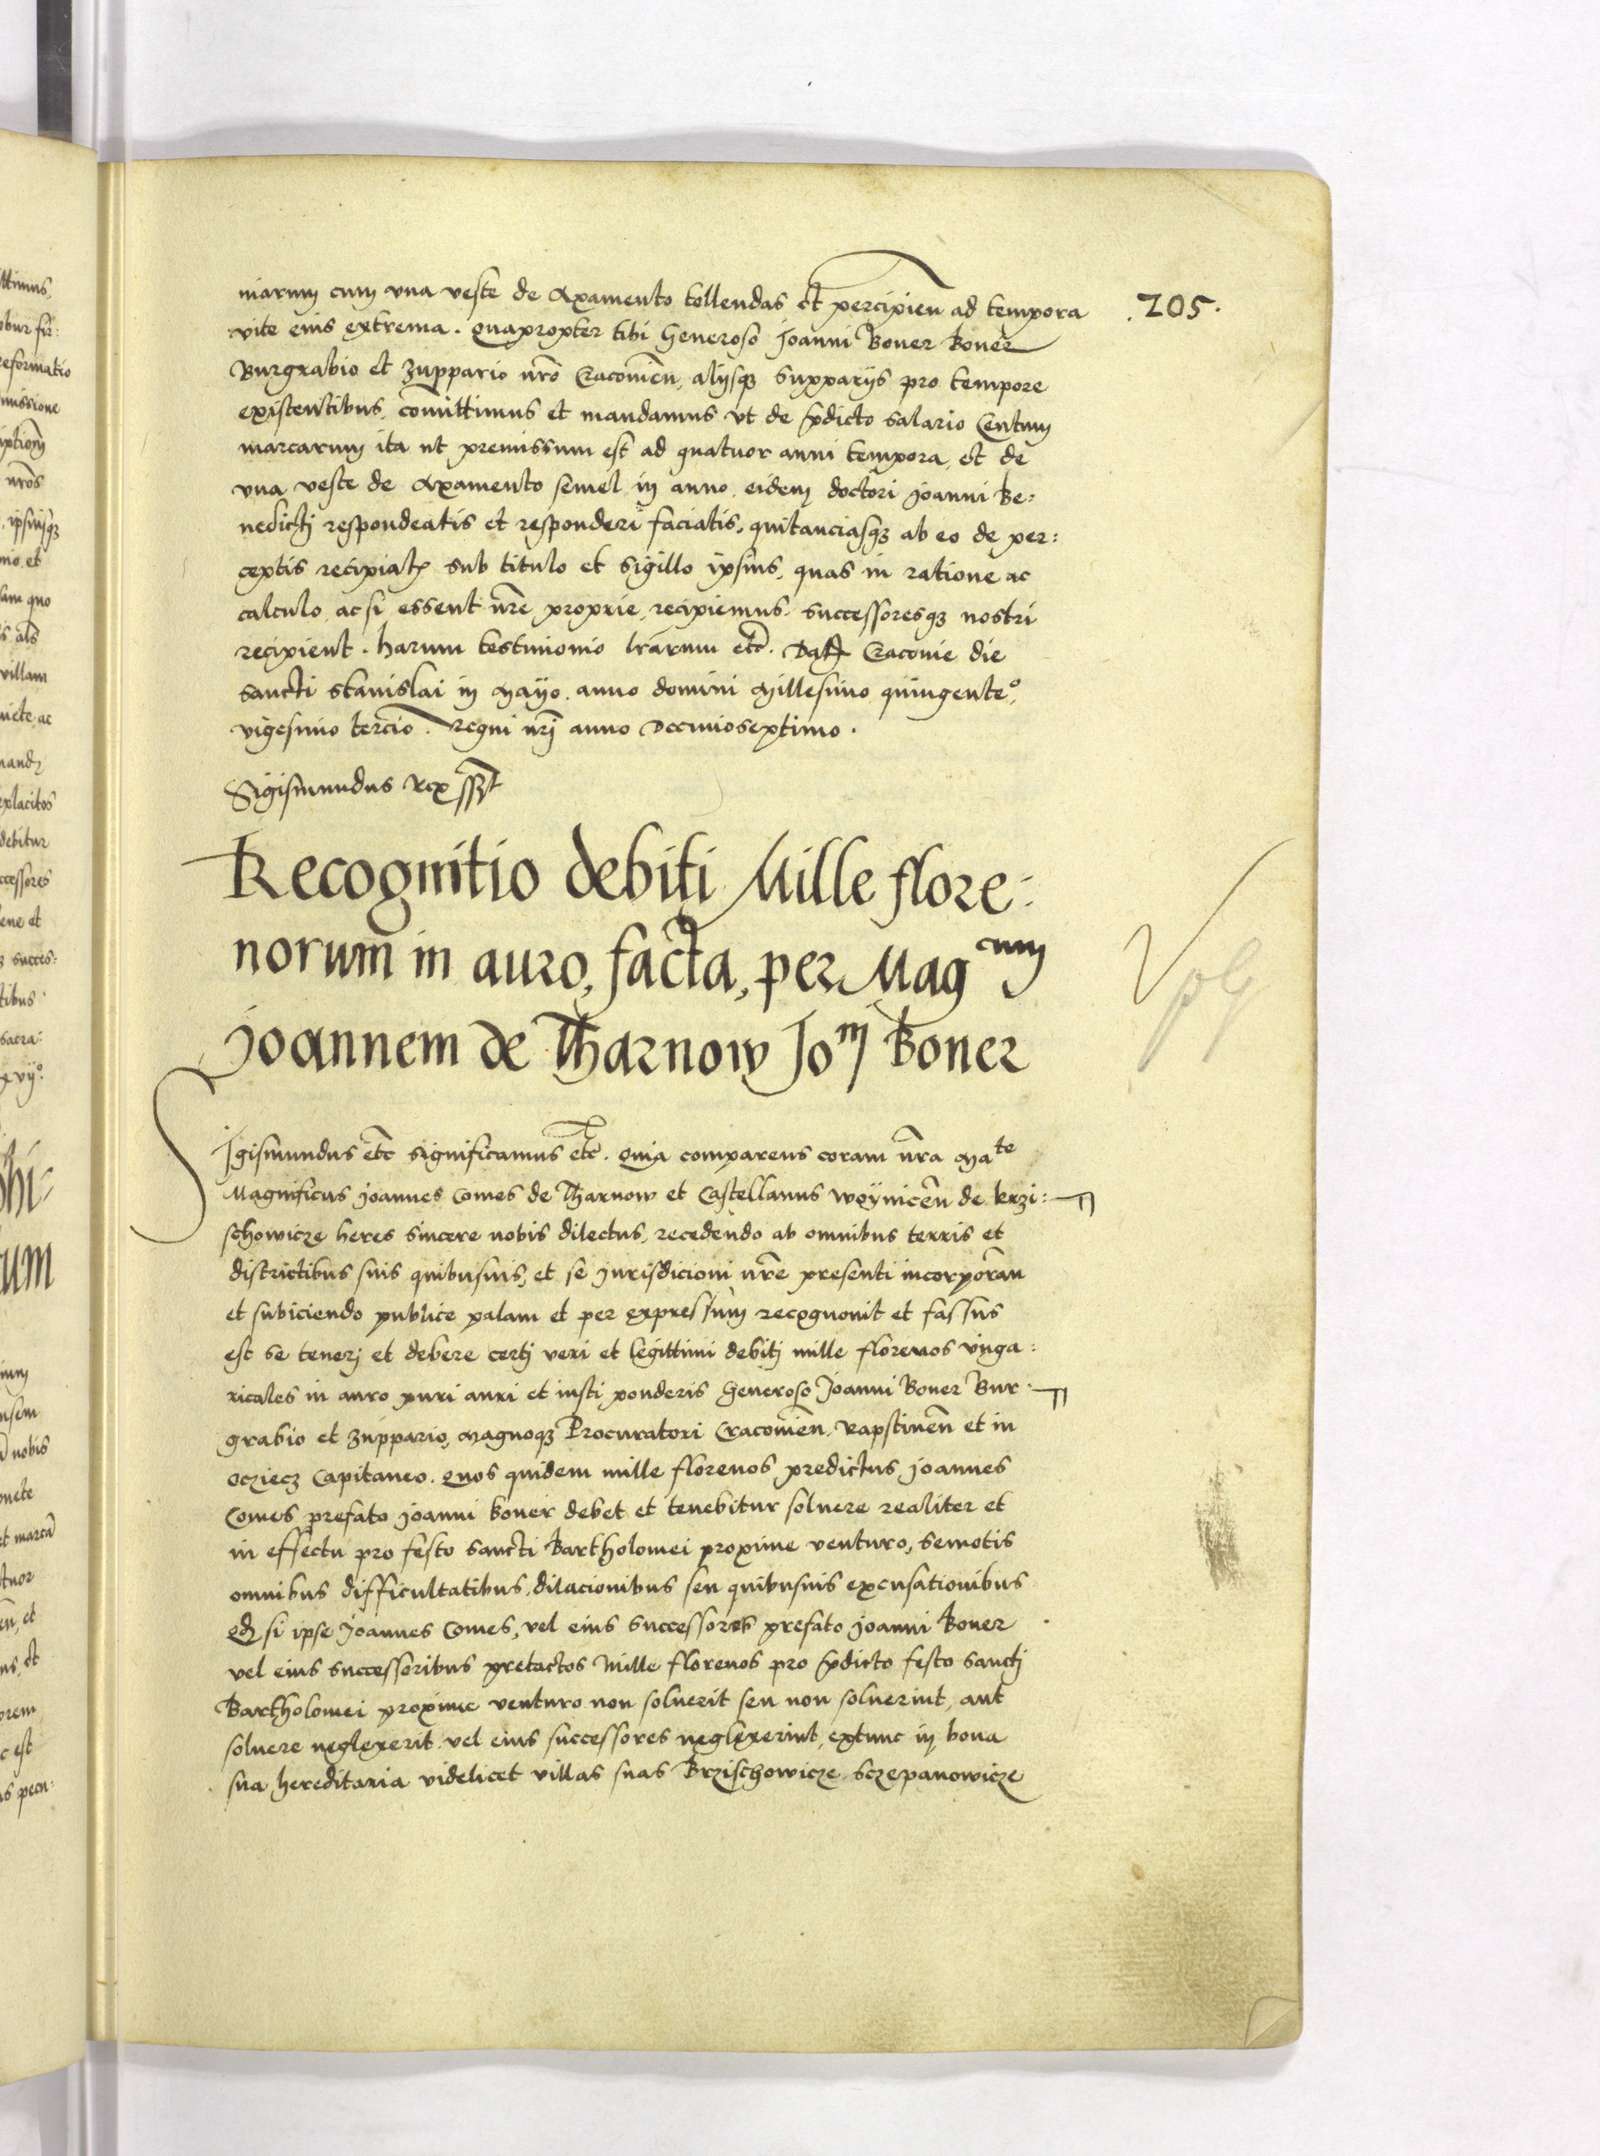 niarum cum vna veste de Axamento tollendas et percipien ad tempora
.205.
vite eius extrema. Quapropter tibi Generoso Joanni Boner Boner
Burgrabio et Zuppario nro Cracouien, alijsq suppariis pro tempore
existentibus, comittimus et mandamus vt de pdicto salario Centum
marcarum ita ut premissum est ad quatuor anni tempora, et de
vna veste de Axamento semel in anno eidem doctori Joanni Be:
nedicti respondeatis et responderi faciatis, quitanciasq ab eo de per:
ceptis recipiatis sub titulo et sigillo ipsius, quas in ratione ac
calculo, ac si essent nre proprie, recipiemus successoresq nostri
recipient. harum testimonio lrarum etc. Dat Cracouie die
Sancti Stanislai in Mayo. anno domini Millesimo quingente°,
vigesimo tercio. Regni nri anno Decimoseptimo.
Sigismundus Rex sst
Recognitio debiti Mille flore:
norum in auro, facta, per Mag cum
Joannem de Tharnow Joni Boner
Sigismundus etc significamus etc. Quia comparens coram nra Mate
Magnificus Joannes Comes de Tharnow et Castellanus Woynicen de Brzi:
schowicze heres sincere nobis dilectus, recedendo ab omnibus terris et
districtibus suis quibusuis, et se Jurisdicioni nre presenti incorporan
et subiciendo publice palam et per expressum recognouit et fassus
est se teneri et debere certi veri et legittimi debiti mille florenos vnga:
ricales in auro puri auri et iusti ponderis Generoso Joanni Boner Bur
grabio et Zuppario, Magnoq Procuratori Cracouien, Rapstinen et in
Ocziecz Capitaneo. Quos quidem mille florenos predictus Joannes
Comes prefato Joanni Boner debet et tenebitur soluere realiter et
in effectu pro festo Sancti Bartholomei proxime venturo, semotis
omnibus difficultatibus, dilacionibus seu quibusuis excusationibus
Qd si ipse Joannes Comes, vel eius successores prefato Joanni Boner
vel eius successoribus pretactos Mille florenos pro pdicto festo sancti
Bartholomei proxime venturo non soluerit seu non soluerint, aut
soluere neglexerit vel eius successores neglexerint, extunc in bona
sua hereditaria videlicet villas suas Brzischowicze Sczepanowicze